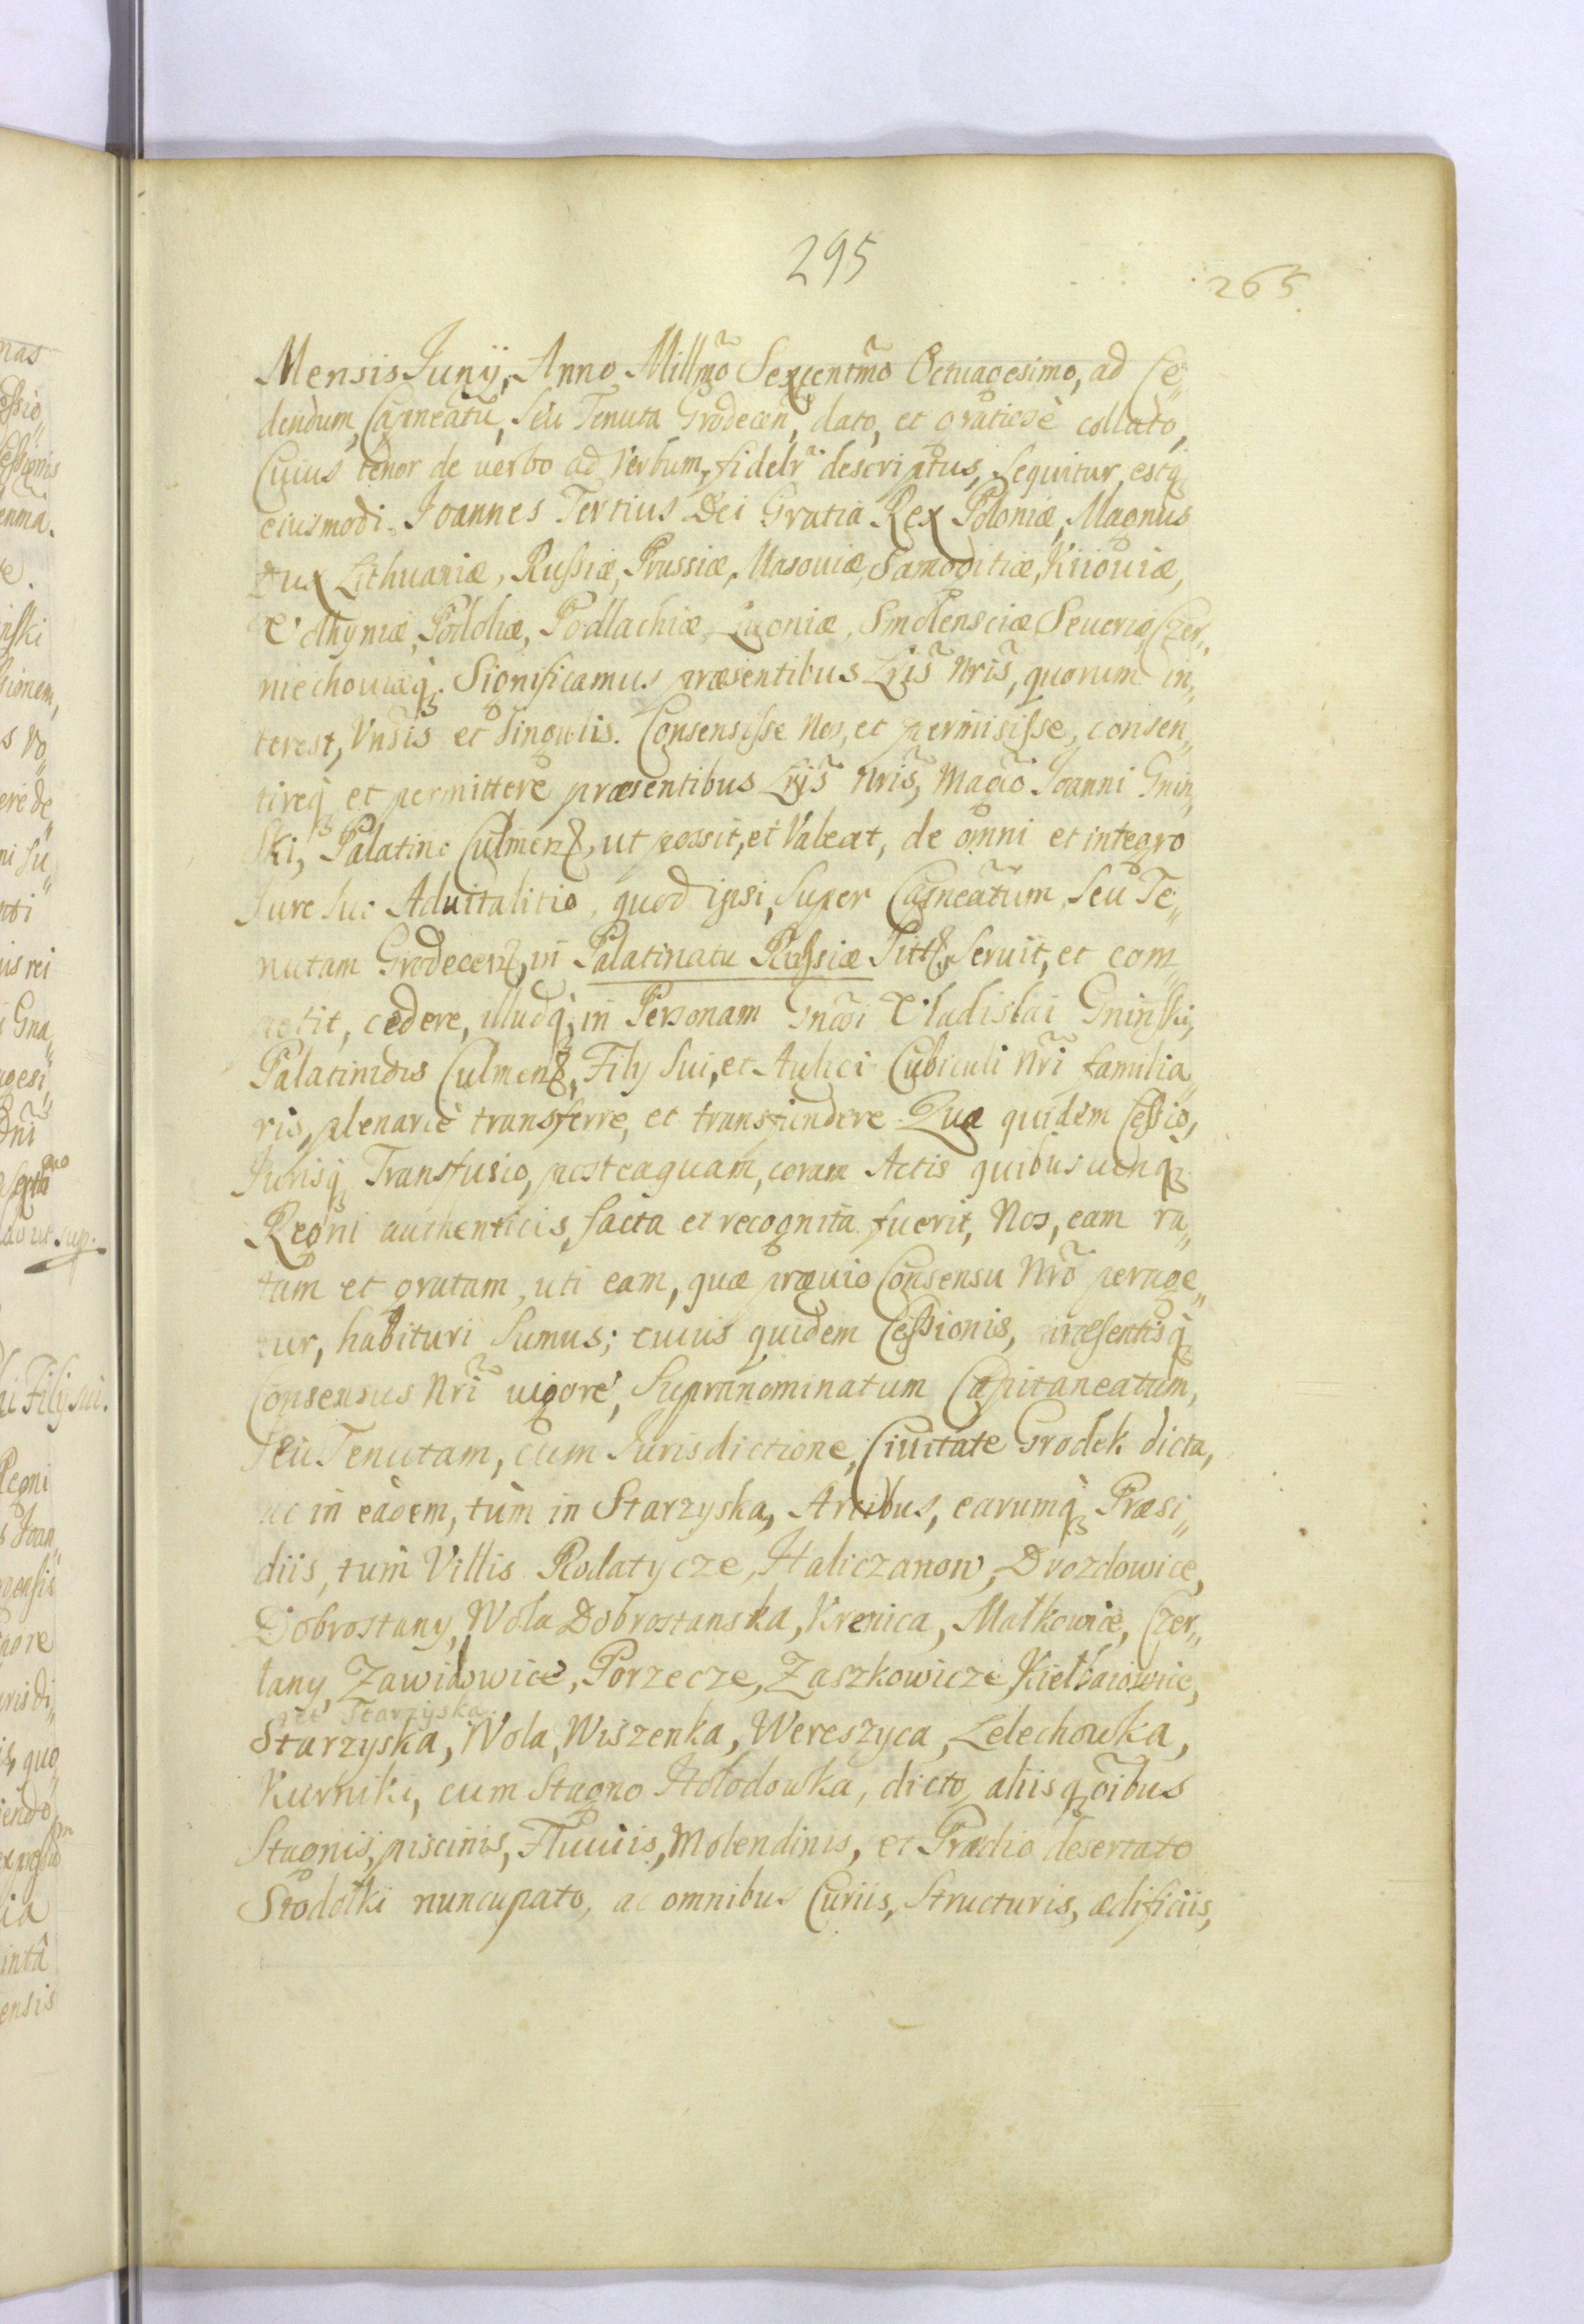 295
265
Mensis Junÿ, Anno Millmõ Sexcentmõ Octuagesimo, ad Ce„
dendum, Capneatu, Seu Tenuta Grodecen, dato, et gratiosè collato,
Cuius tenor de uerbo ad Verbum, fidelr descriptus, Sequitur, estq
eiusmodi. Joannes Tertius Dei Gratia Rex Poloniæ, Magnus
Dux Lithuaniæ, Russiæ, Prussiæ, Masouiæ, Samogitiæ, Kiiouiæ,
Volhyniæ, Podoliæ, Podlachiæ, Liuoniæ, Smolensciæ Seueriæ Czer„
niechouiæq. Significamus præsentibus Lris Nris, quorum in„
terest, Vnsis et Singulis. Consensisse Nos, et permisisse, consen„
tireq et permittere præsentibus Lris Nris, Magco Joanni Gnin„
ski, Palatino Culmen, ut possit, et Valeat, de omni et integro
Jure Suo Aduitalitio, quod ipsi, Super Capneatum, Seu Te„
nutam Grodecen, in Palatinatu Russiæ Sitt, Seruit, et com„
petit, cedere, illudq, in Personam Gnosi Vladislai Gninski,
Palatinidis Culmen, Filÿ Sui, et Aulici Cubiculi Nri familia„
ris, plenariè transferre, et transfundere. Quæ quidem Cessio,
Jurisq Transfusio, posteaquam, coram Actis quibusuenq
Regni authenticis, facta et recognita fuerit, Nos, eam ra„
tam et gratam, uti eam, quæ præuio Consensu Nro perage„
tur, habituri Sumus; cuius quidem Cessionis, præsentisq
Consensus Nri uigore, Supranominatum Capitaneatum,
Seu Tenutam, cum Jurisdictione, Ciuitate Grodek dicta,
ac in eâdem, tùm in Starzyska, Arcibus, earumq Præsi„
diis, tum Villis Rodatycze, Haliczanow, Drozdowice,
Dobrostany, Wola Dobrostanska, Krenica, Małkowice, Czer„
lany, Zawidowice, Porzecze, Zaszkowicze, Kiełbaiowice,
et Starzyska
Starzyska, Wola, Wiszenka, Wereszyca, Lelechowka,
Kurniki, cum Stagno Hołodowka, dicto, aliisq oibus
Stagnis, piscinis, Fluuiis, Molendinis, et Prædio desertato
Stodołki nuncupato, ac omnibus Curiis, Structuris, ædificiis,